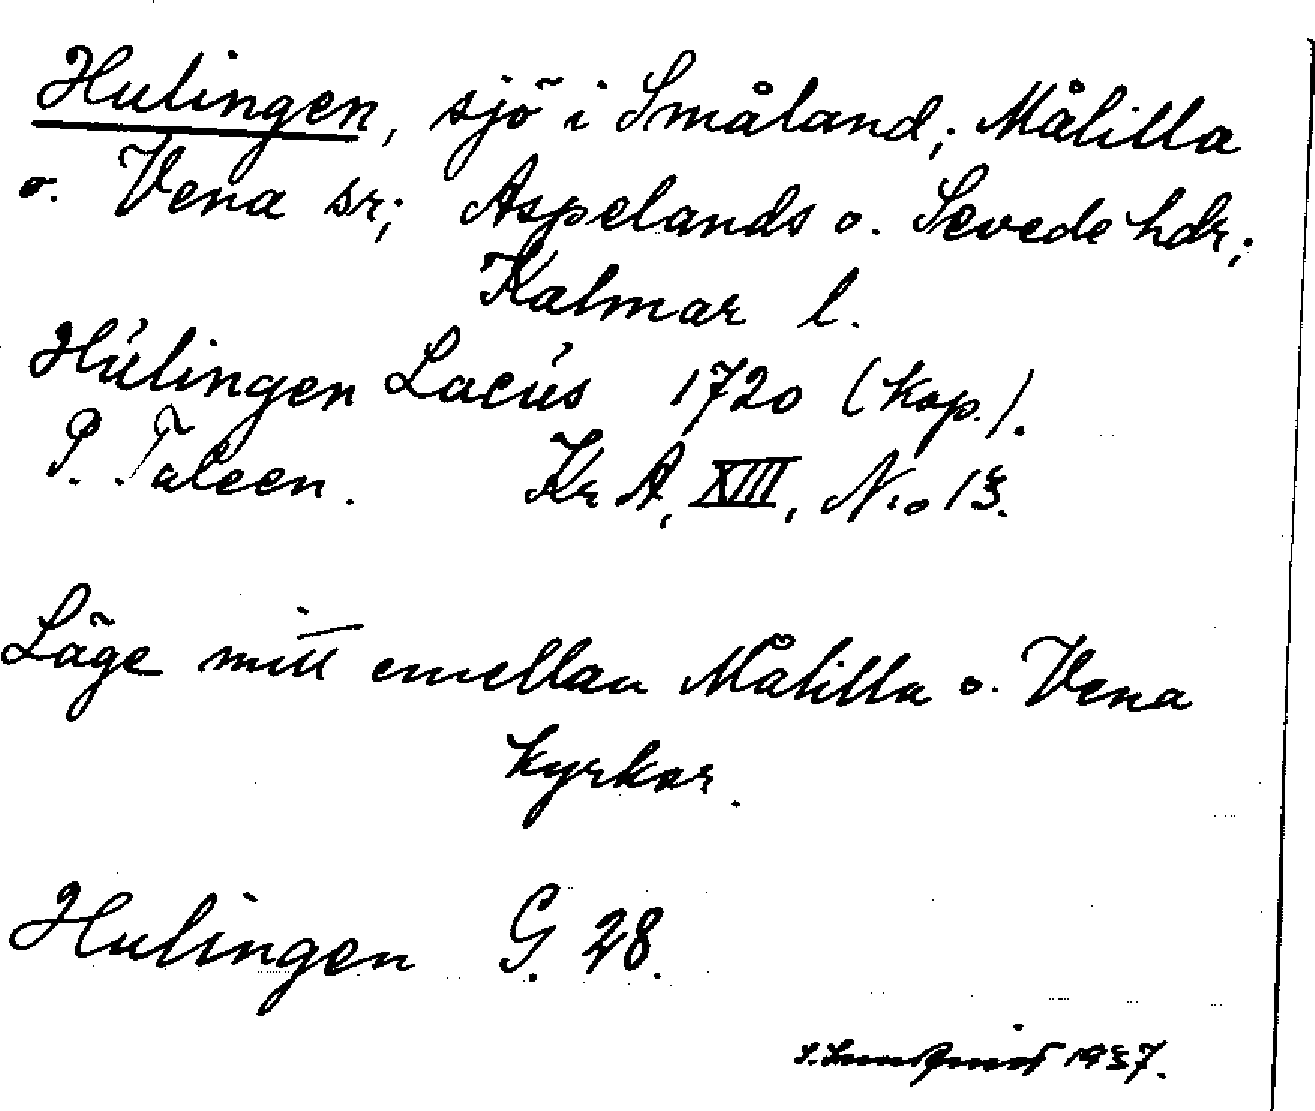 Hulingen, sjö i Småland; Målilla
o. Vena sr; Aspelands o. Sevede hdr;
Kalmar l.
Húlingen Lacús 1720 (Kop.).
P. Taleen. Kr A, XIII, N:o 13.
Läge mitt emellan Målilla o. Vena
kyrkor.
Hulingen G. 28.
1937.